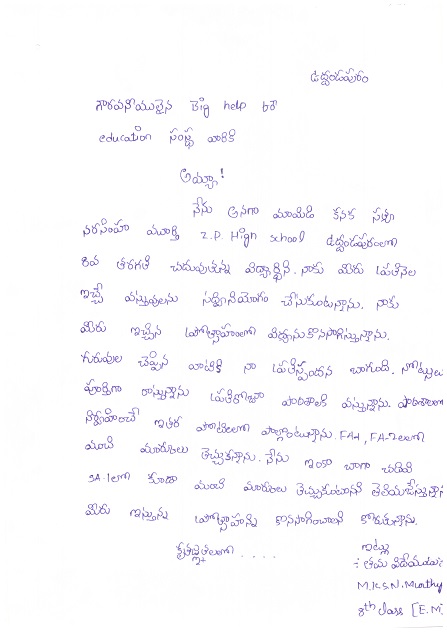 ఉద్దండపురం
గౌరవనీయులైన Big help for
education సంస్థ వారికి
అయ్యా!
నేను అనగా మాయిడి కనక సత్యా
నరసింహ మూర్తి Z.P. High school ఉద్దండపురంలో
8వ తరగతి చదువుతున్న విద్యార్థిని. నాకు మీరు ప్రతినెల
ఇచ్చే వస్తువులను సద్వినియోగం చేసుకుంటున్నాను. నాకు
మీరు ఇచ్చిన ప్రోత్సాహంతో విద్యను కొనసాగిస్తున్నాను.
గురువులు చెప్పిన వాటికి నా ప్రతిస్పందన బాగుంది. నోట్సులు
పూర్తిగా రాస్తున్నాను ప్రతిరోజూ పాఠశాలకి వస్తున్నాను. పాఠశాలలో
నిర్వహించే ఇతర పోటీలలో పాల్గొంటున్నాను. FA-1, FA-2లలో
మంచి మార్కులు తెచ్చుకున్నాను. నేను ఇంకా బాగా చదివి
SA-1లో కూడా మంచి మార్కులు తెచ్చుకుంటానని తెలియజేస్తున్నాను
మీరు ఇస్తున్న ప్రోత్సాహాన్ని కొనసాగించాలని కోరుతున్నాను.
కృతజ్ఞతలతో ....
ఇట్లు
తమ విదేయుడు:
M.K.S.N. Murthy
8th class [E.M]